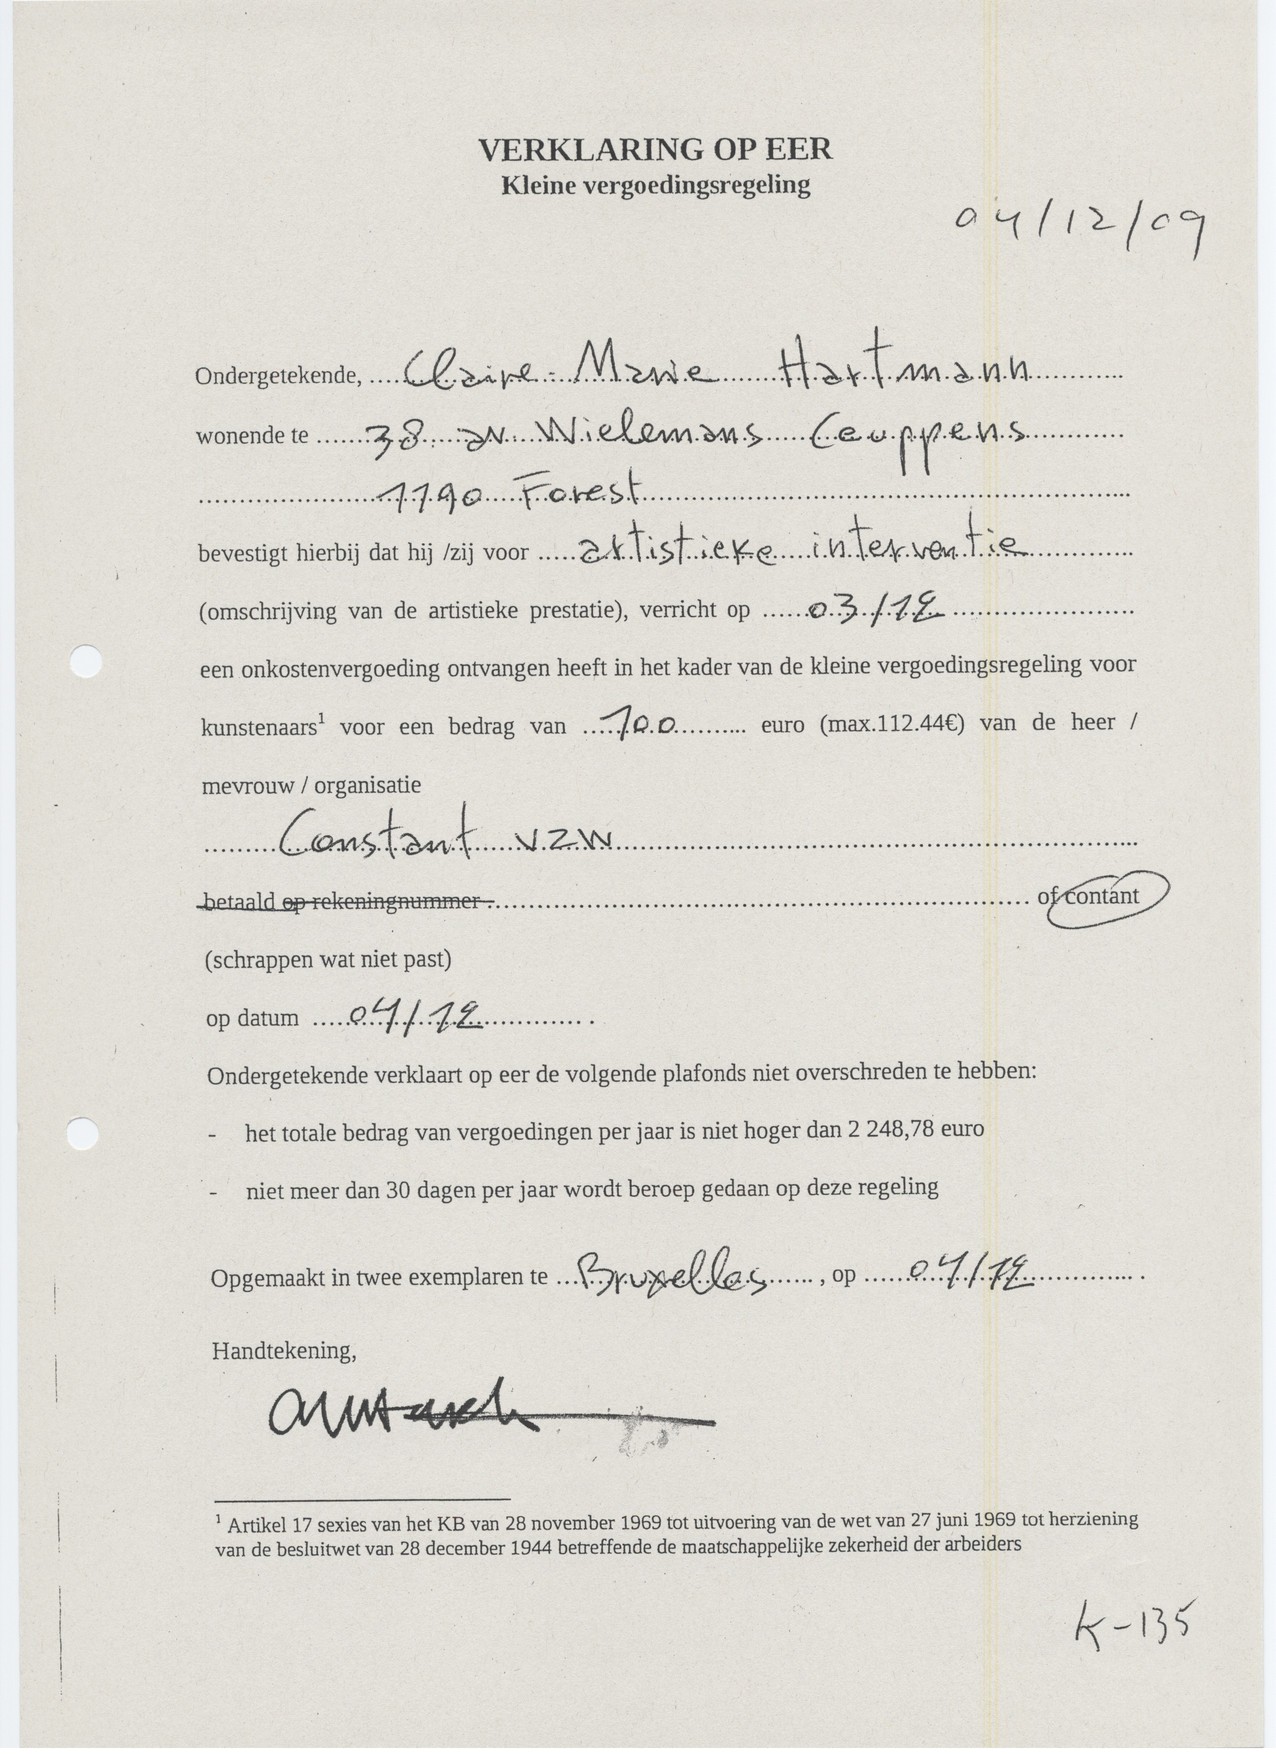 VERKLARING OP EER
Kleine vergoedingsregeling
04/12/09
Ondergetekende, .... Claire-Marie Hartmann ............
wonende te ....... 38 av Wielemans Ceuppens ............
...................... 1190 Forest ......................
bevestigt hierbij dat hij /zij voor ..... artistieke interventie .............
(omschrijving van de artistieke prestatie), verricht op ...... 03/12 ......................
een onkostenvergoeding ontvangen heeft in het kader van de kleine vergoedingsregeling voor
kunstenaars¹ voor een bedrag van ... 100 .......... euro (max.112.44€) van de heer /
mevrouw / organisatie
......... Constant vzw ......................
betaald op rekeningnummer : ...................... of contant
(schrappen wat niet past)
op datum ..... 04/12 .............. .
Ondergetekende verklaart op eer de volgende plafonds niet overschreden te hebben:
- het totale bedrag van vergoedingen per jaar is niet hoger dan 2 248,78 euro
- niet meer dan 30 dagen per jaar wordt beroep gedaan op deze regeling
Opgemaakt in twee exemplaren te ... Bruxelles ...... , op ...... 04/12 .............. .
Handtekening,
¹ Artikel 17 sexies van het KB van 28 november 1969 tot uitvoering van de wet van 27 juni 1969 tot herziening
van de besluitwet van 28 december 1944 betreffende de maatschappelijke zekerheid der arbeiders
K-135